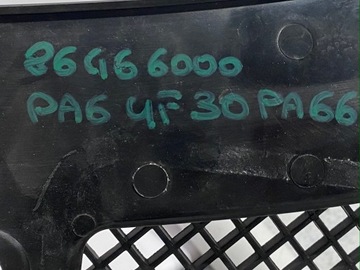 86466000
PA6 GF30 PA66